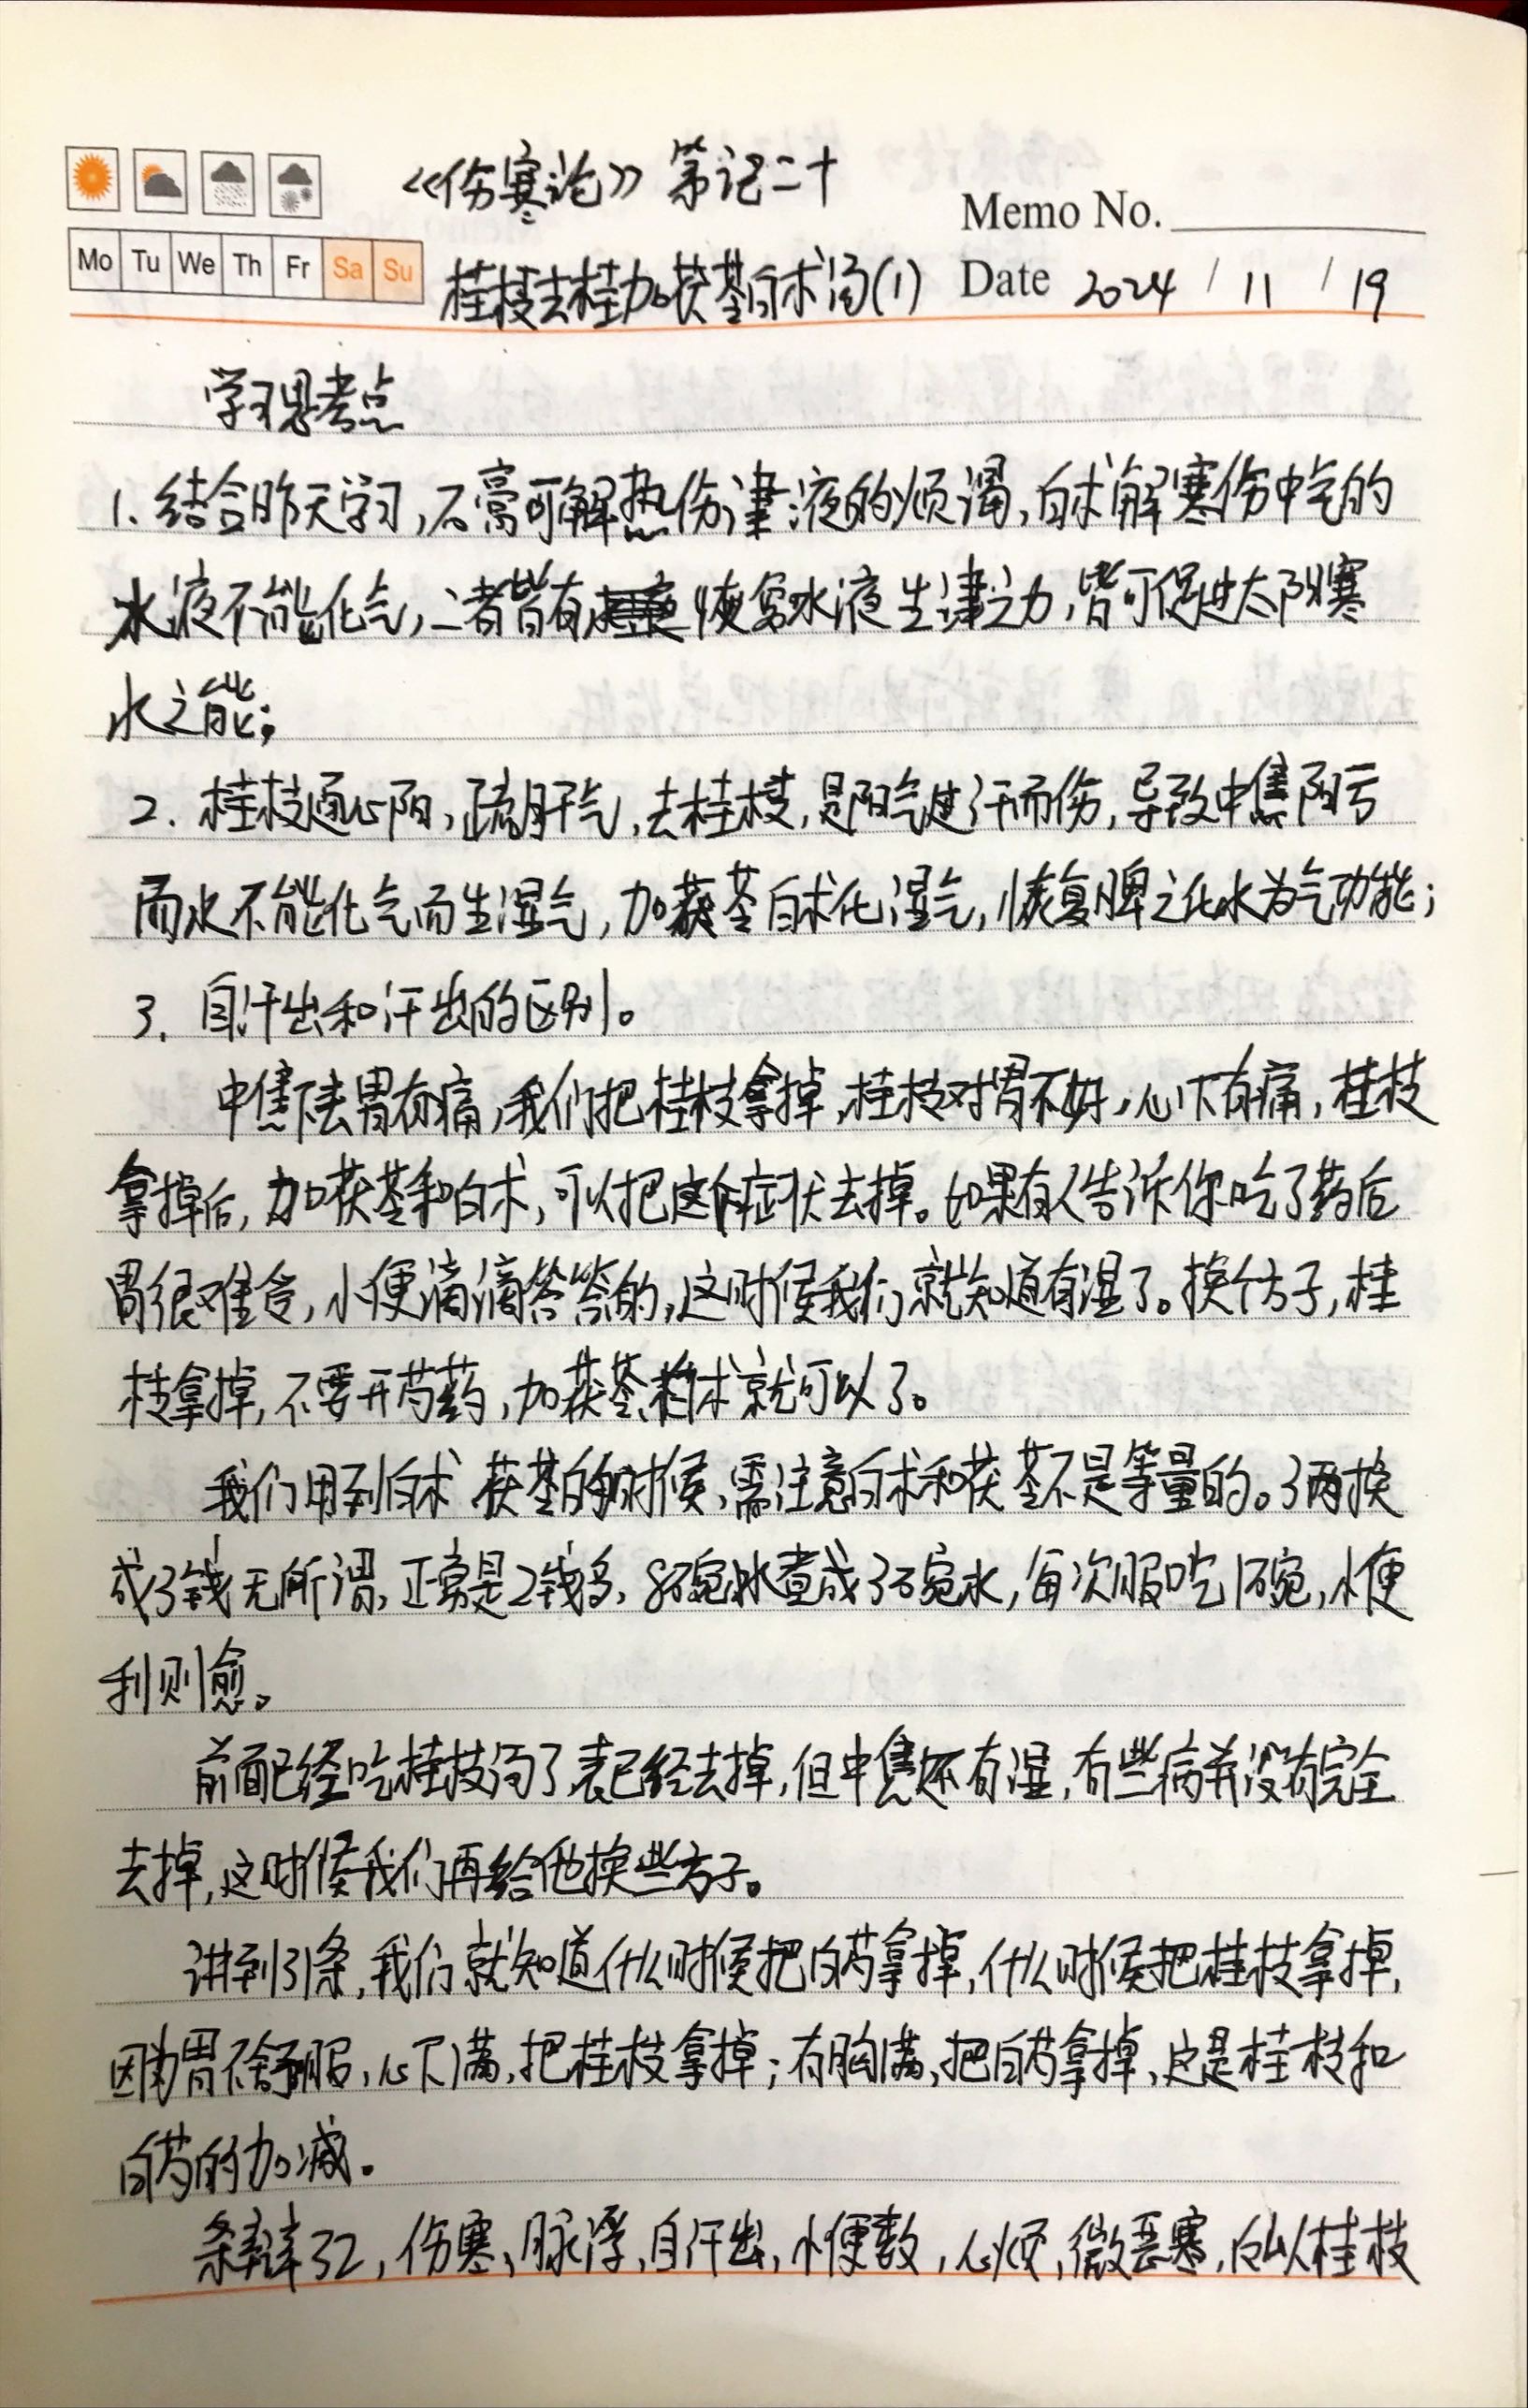 《伤寒论》笔记二十
Memo No.
Mo Tu We Th Fr Sa Su
桂枝去桂加茯苓白术汤(1)
Date 2024 / 11 / 19
学习思考点
1. 结合昨天学习,石膏可解热伤津液的烦渴,白术解寒伤中焦的
水液不能化气,二者皆有恢复水液生津之力,皆可促进太阳寒
水之能;
2. 桂枝通心阳,疏肝气,去桂枝,是阳气过汗而伤,导致中焦阳亏
而水不能化气而生湿气,加茯苓白术化湿气,恢复脾之化水为气功能;
3. 自汗出和汗出的区别。
中焦下去胃有痛,我们把桂枝拿掉,桂枝对胃不好,心下有痛,桂枝
拿掉后,加茯苓和白术,可以把这个症状去掉。如果有人告诉你吃了药后
胃很难食,小便滴滴答答的,这时候我们就知道有湿了。换个方子,桂
枝拿掉,不要开芍药,加茯苓、白术就可以了。
我们用到白术 茯苓的时候,需注意白术和茯苓不是等量的。3两换
成3钱无所谓,正常是2钱多,8碗水煮成3碗水,每次服吃1碗,小便
利则愈。
前面已经吃桂枝汤了,表已经去掉,但中焦还有湿,有些病并没有完全
去掉,这时候我们再给他换些方子。
讲到31条,我们就知道什么时候把白芍拿掉,什么时候把桂枝拿掉,
因为胃不舒服,心下满,把桂枝拿掉;有胸满,把白芍拿掉,这是桂枝和
白芍的加减。
条辨32,伤寒、脉浮,自汗出,小便数,心烦,微恶寒,反以桂枝